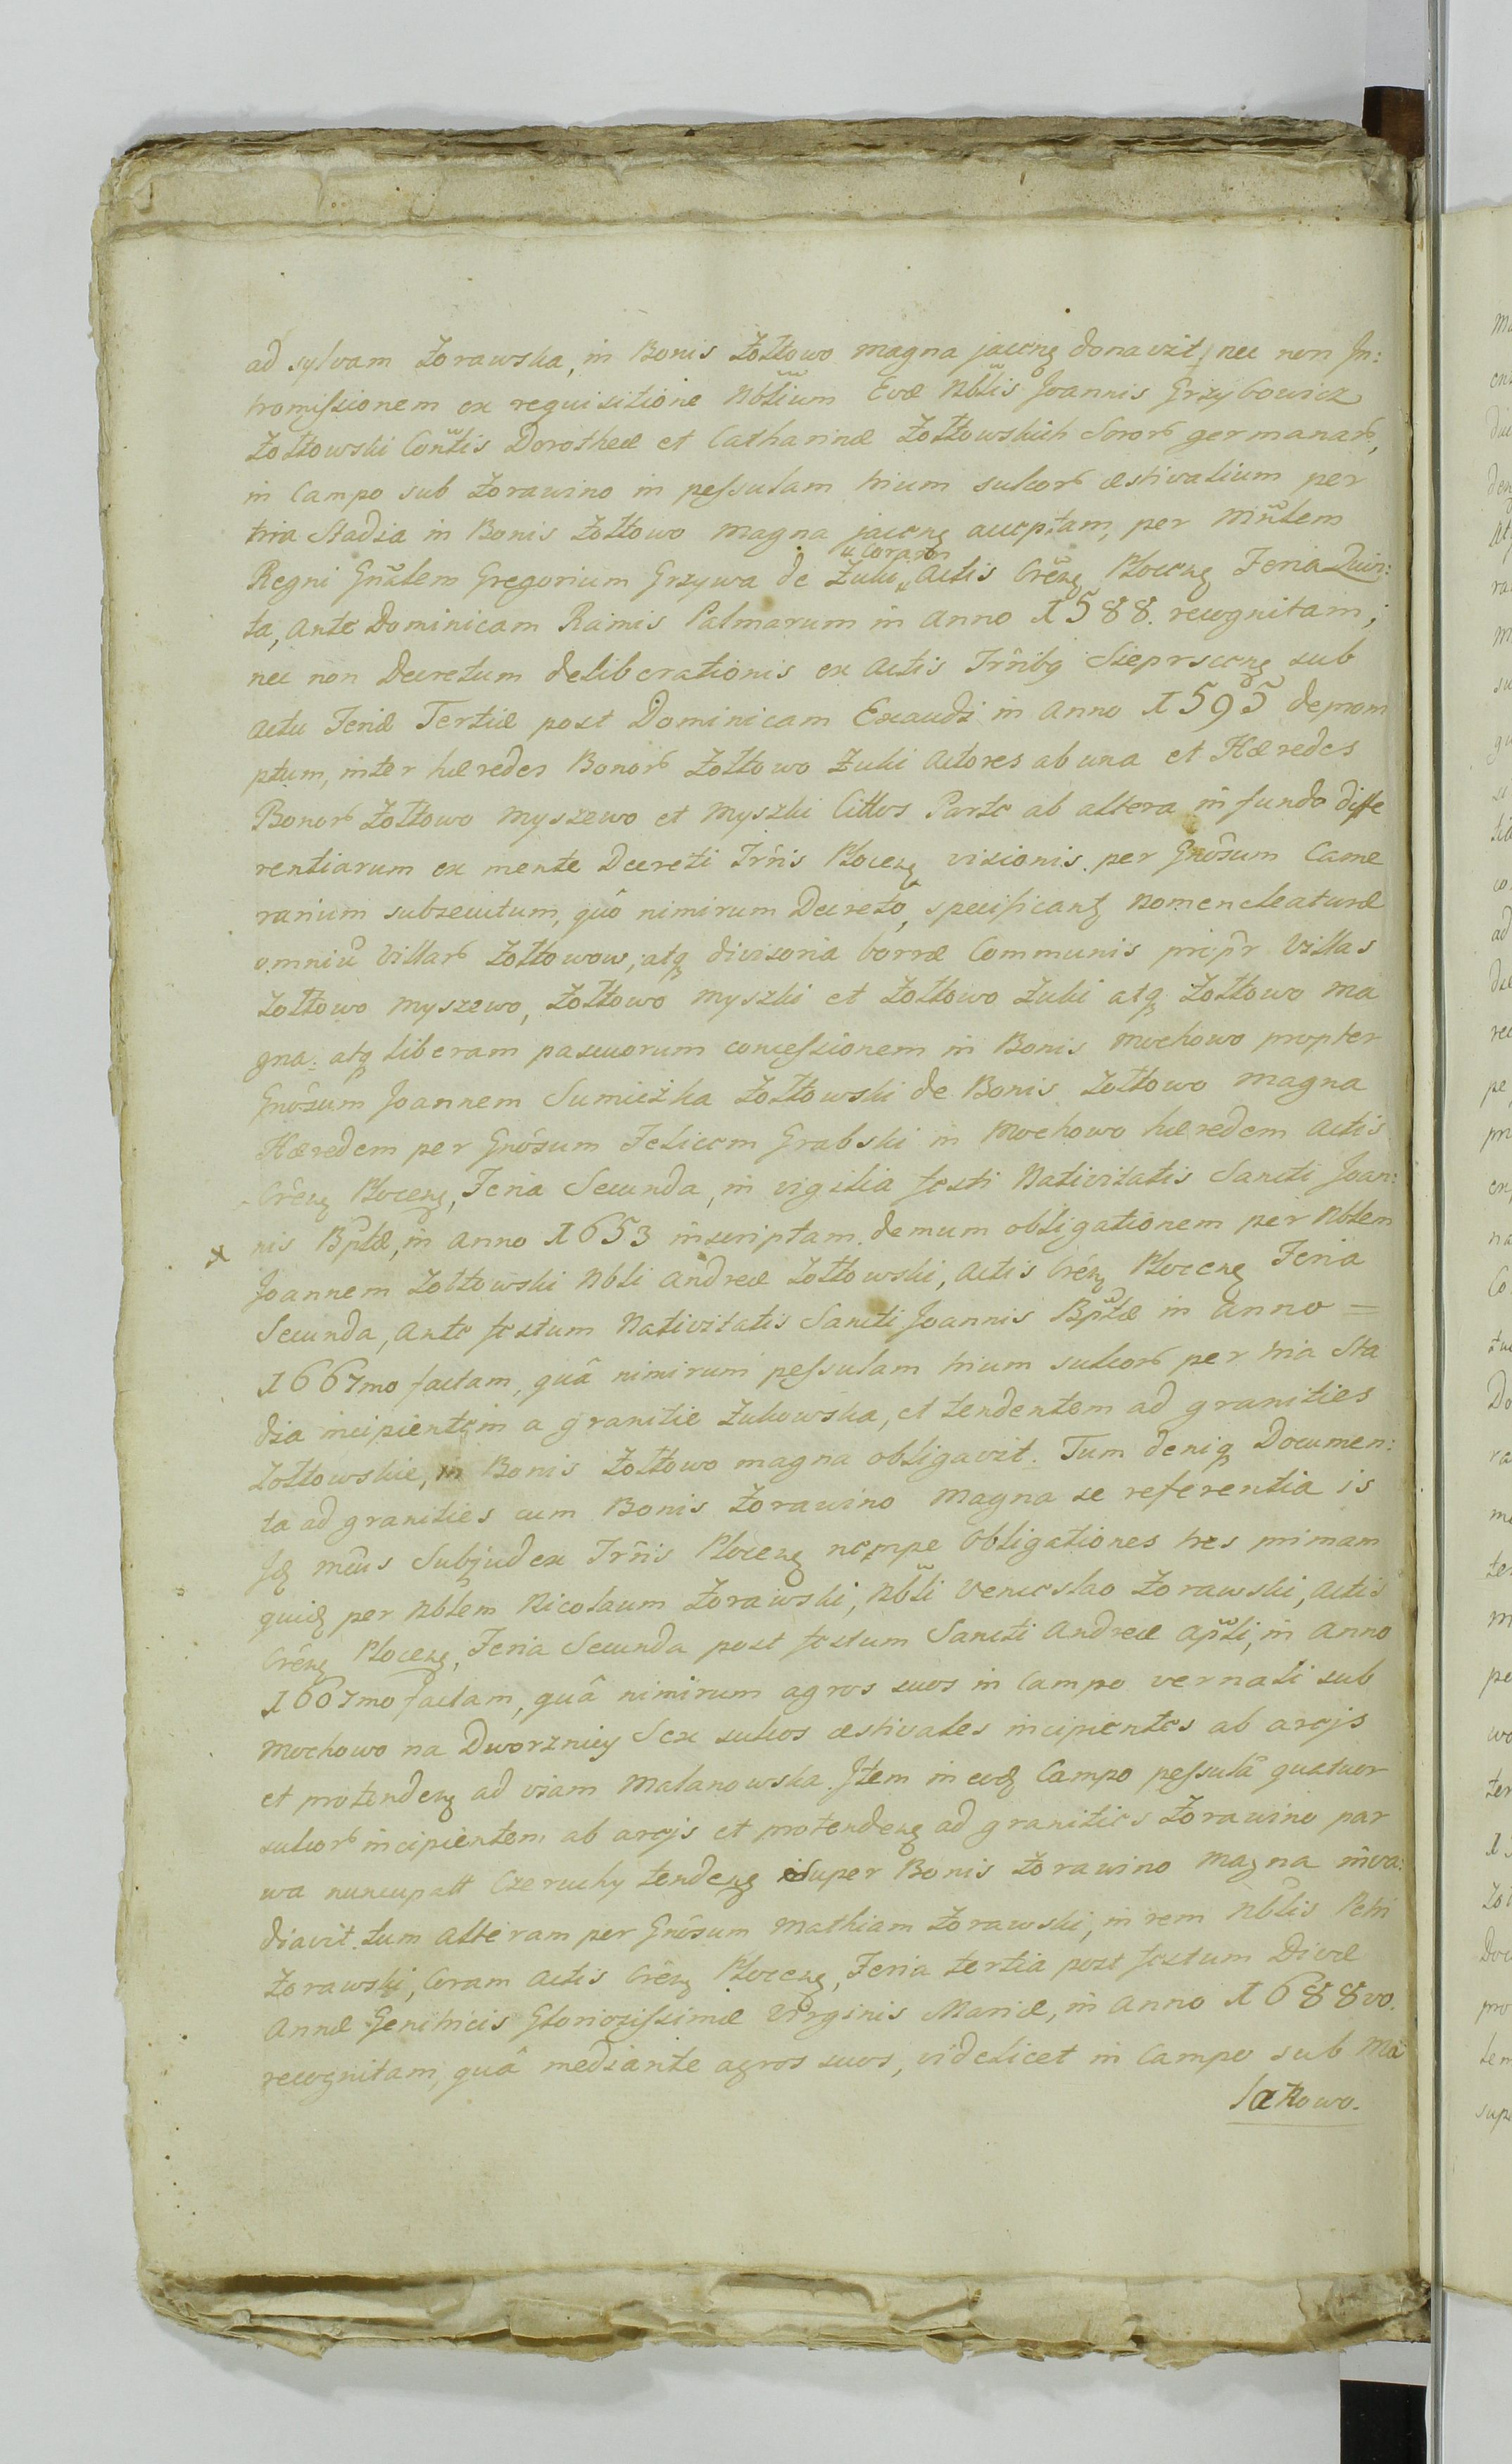 ad sylvam Żorawska, in Bonis Żołtowo magna jacenz donavit, nec non In:
tromissionem ex requisitione Nblium Evæ Nblis Joannis Grzybowicz
Żołtowski Contis Dorotheæ et Catharinæ Żołtowskich Soror germanar,
in Campo sub Żorawino in pessulam trium sulcor æstivalium per
tria Stadia in Bonis Żołtowo magna jacenz acceptam, per Mintlem
Regni Gnalem Gregorium Grzywa de Żuki „Coram„ Actis Crenz Plocenz Feria Quin:
ta, ante Dominicam Ramis Palmarum in anno 1588. recognitam;
nec non Decretum deliberationis ex Actis Trribq Sieprscenz sub
actu Feriæ Tertiæ post Dominicam Exaudi in anno 1595 deprom
ptum, inter hæredes Bonor Żołtowo Żuki Actores ab una et Hæredes
Bonor Żołtowo Myszewo et Myszki Cittos Parte ab altera in fundo diffe
rentiarum ex mente Decreti Trris Plocenz visionis per Gnosum Came
rarium subsecutum, quô nimirum Decretô, specificantz Nomencleaturæ
omniu Villar Żołtowow, atq divisoria borræ Communis propr Villas
Żołtowo Myszewo, Żołtowo Myszki et Żołtowo Żuki atq Żołtowo Ma
gna: atq liberam pascuorum concessionem in Bonis Mochowo propter
Gnosum Joannem Sumiezka Żołtowski de Bonis Żołtowo Magna
Hæredem per Gnosum Felicem Grabski in Mochowo hæredem Actis
Crenz Plocenz, Feria Secunda, in vigilia festi Nativitatis Sancti Joan:
x nis Bptæ, in anno 1653 inscriptam. demum obligationem per Nblem
Joannem Żołtowski Nbli Andreæ Żołtowski, Actis Crenz Plocenz Feria
Secunda, Ante festum Nativitatis Sancti Joannis Bptæ in anno =
1667mo factam, quâ nimirum pessulam trium sulcor per tria Sta
dia incipientem a granitie Żukowska, et tendentem ad granities
Żołtowskie, in Bonis Żołtowo magna obligavit. Tum deniq Documen:
ta ad granities cum Bonis Żorawino Magna se referentia is
Jdz meus Subjudex Trris Plocenz nempe Obligationes tres primam
quidz per Nblem Nicolaum Żorawski, Nbli Venceslao Żorawski, Actis
Crenz Plocenz, Feria Secunda post festum Sancti Andreæ Apsli, in anno
1607mo factam, quâ nimirum agros suos in Campo vernali sub
Mochowo na Dworzniey Sex sulcos æstivales incipientes ab areis
et protendenz ad viam Malanowska. Item in eodz Campo pessulâ quatuor
sulcor incipientem ab areis et protendenz ad granities Żorawino par
wa nuncupatt Czeruchy tendenz Super Bonis Żorawino Magna inva:
diavit. tum alteram per Gnosum Mathiam Żorawski, in rem Nblis Petri
Żorawski, Coram Actis Crenz Plocenz, Feria tertia post festum Divæ
Annæ Genitricis Gloriosissimæ Virginis Mariæ, in Anno 1688vo.
recognitam, quâ mediante agros suos, videlicet in Campo sub Ma
lanowo.